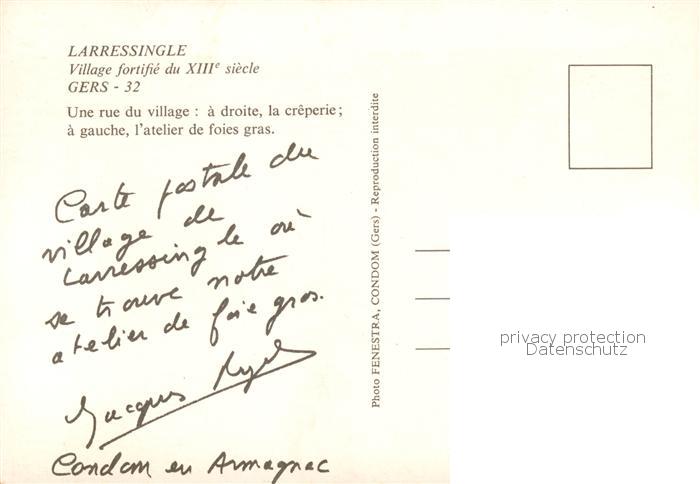 LARRESSINGLE
Village fortifié du XIIIe siècle
GERS - 32
Une rue du village : à droite, la crêperie;
à gauche, l'atelier de foies gras.
Carte postale du
village de
Larressingle où
se trouve notre
atelier de foie gras.
Jacques
Condom en Armagnac
Photo FENESTRA, CONDOM (Gers) - Reproduction interdite
privacy protection
Datenschutz